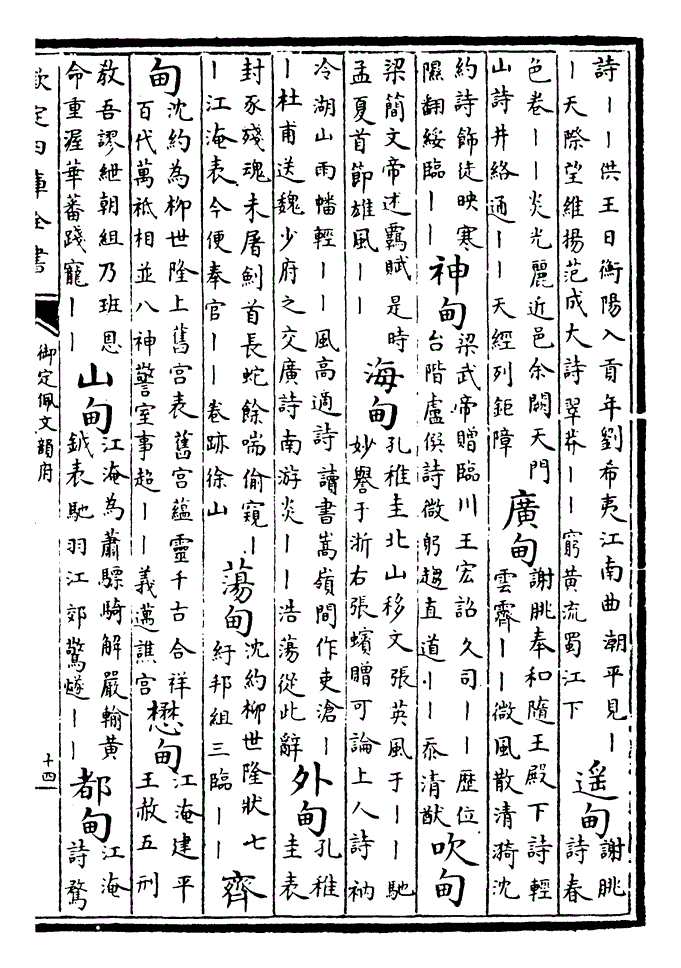 詩丨丨供王日衡陽入貢年劉希夷江南曲潮平見丨
丨天際望維揚范成大詩翠莽丨丨窮黄流蜀江下
遥甸
謝朓
詩春
色卷丨丨炎光麗近邑余闕天門
山詩井絡通丨丨天經列鉅障
廣甸
謝朓奉和隨王殿下詩輕
雲霽丨丨微風散清漪沈
約詩飾徒映寒
隰翻綏臨丨丨
神甸
梁武帝贈臨川王宏詔久司丨丨歷位
台階盧俁詩微躬趨直道丨丨忝清猷
吹甸
梁簡文帝述羈賦是時
孟夏首節雄風丨丨
海甸
孔稚圭北山移文張英風于丨丨馳
妙譽于浙右張蠙贈可論上人詩衲
冷湖山雨幡輕丨丨風高適詩讀書嵩嶺間作吏滄丨
丨杜甫送魏少府之交廣詩南游炎丨丨浩蕩從此辭
外甸
孔稚
圭表
封豕殘魂未屠劍首長蛇餘喘偷窺丨
丨江淹表今便奉官丨丨卷跡徐山
蕩甸
沈約柳世隆狀七
紆邦組三臨丨丨
齊
甸
沈約為柳世隆上舊宫表舊宫藴靈千古合祥
百代萬祗相並八神警室事超丨丨義邁譙宫
懋甸
江淹建平
王赦五刑
教吾謬紲朝組乃班恩
命重渥華蕃踐寵丨丨
山甸
江淹為蕭驃騎解嚴輸黄
鉞表馳羽江郊驚燧丨丨
都甸
江淹
詩鶩
欽定四庫全書
御定佩文韻府
十四